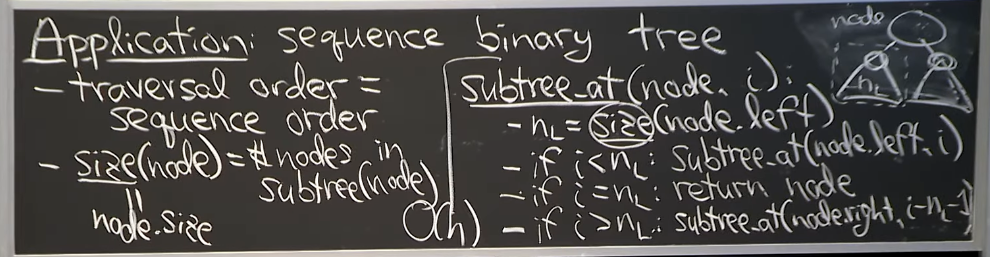 Application: sequence binary tree
- traversal order =
sequence order
- size(node) = # nodes in
subtree(node)
||
node.size
subtree_at(node, i):
- n_L = size(node.left)
- if i < n_L: subtree_at(node.left, i)
- if i = n_L: return node
- if i > n_L: subtree_at(node.right, i-n_L-1)
O(h)
node
n_L